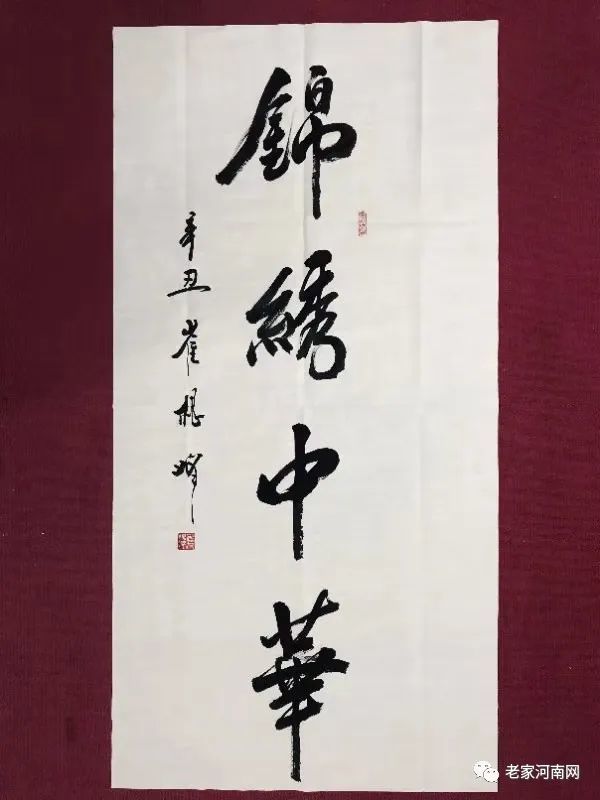 錦繡中華
辛丑 崔根峰
老家河南网